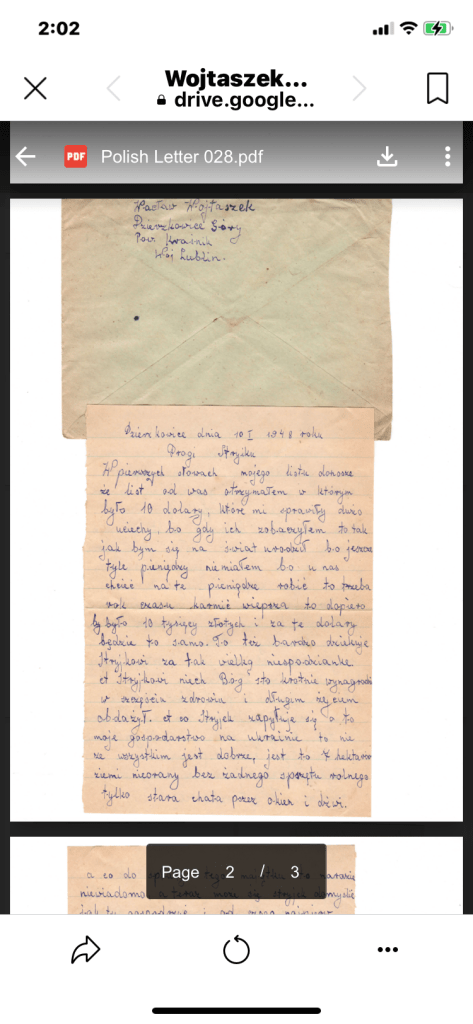 2:02
Wojtaszek...
drive.google...
PDF Polish Letter 028.pdf
Wacław Wojtaszek
Dzierzkowice Góry
Pow Kraśnik
Woj Lublin.
Dzierzkowice dnia 10 I 1948 roku
Drogi Stryjku
W pierwszych słowach mojego listu donosze
że list od was otrzymałem w którym
było 10 dolary, które mi sprawiły dużo
uciechy, bo gdy ich zobaczyłem to tak
jak bym się na świat urodził bo jeszcze
tyle pieniędzy nie miałem bo u nas
chcieć na te pieniądze robić to trzeba
rok czasu karmić wieprza to dopiero
by było 10 tysięcy złotych i za te dolary
będzie to samo. To też bardzo dziękuje
Stryjkowi za tak wielką niespodzianke
et Stryjkowi niech Bóg sto krotnie wynagrodzi
w szczęściu zdrowiu i długim życiem
obdażył. et co Stryjek zapytuje się o to
moje gospodarstwo na ukrainie to nie
ze wszystkim jest dobrze, jest to 7 hektarów
ziemi nieorany bez żadnego sprzętu rolnego
tylko stara chata przez okien i drzwi.
a co do
niewiadomo a teraz może się stryjek domyślić
jak tu gospodarzyć i od czego
Page 2 / 3